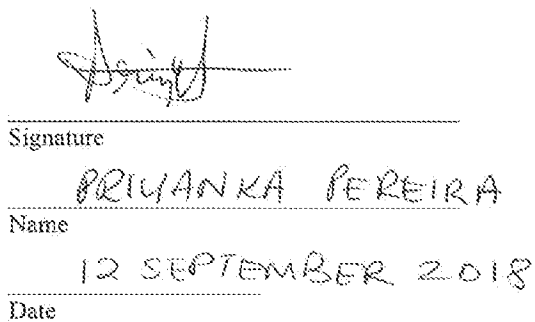 Signature
PRIYANKA PEREIRA
Name
12 SEPTEMBER 2018
Date